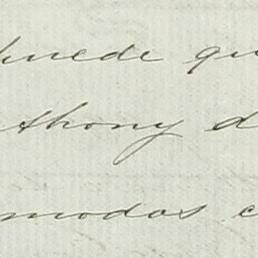 puede qu
nthony d
modos c